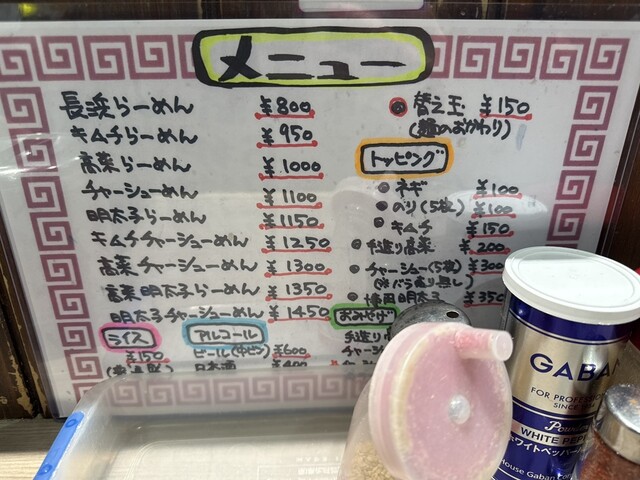 メニュー
長浜らーめん ¥800
キムチらーめん ¥950
高菜らーめん ¥1000
チャーシューめん ¥1100
明太子らーめん ¥1150
キムチチャーシューめん ¥1250
高菜チャーシューめん ¥1300
高菜明太子らーめん ¥1350
明太子チャーシューめん ¥1450
ライス
¥150
アルコール
ビール(中ビン) ¥600
日本酒 ¥400
替え玉 ¥150
(麺のおかわり)
トッピング
ネギ ¥100
のり(5枚) ¥100
キムチ ¥150
手造り高菜 ¥200
チャーシュー(5枚) ¥300
(※バラ売り無し)
博多明太子 ¥350
おみやげ
手造り
チャーシ
GABAN
FOR PROFESS
SINCE
WHITE PEPP
ホワイトペッパー
House Gaban Cor